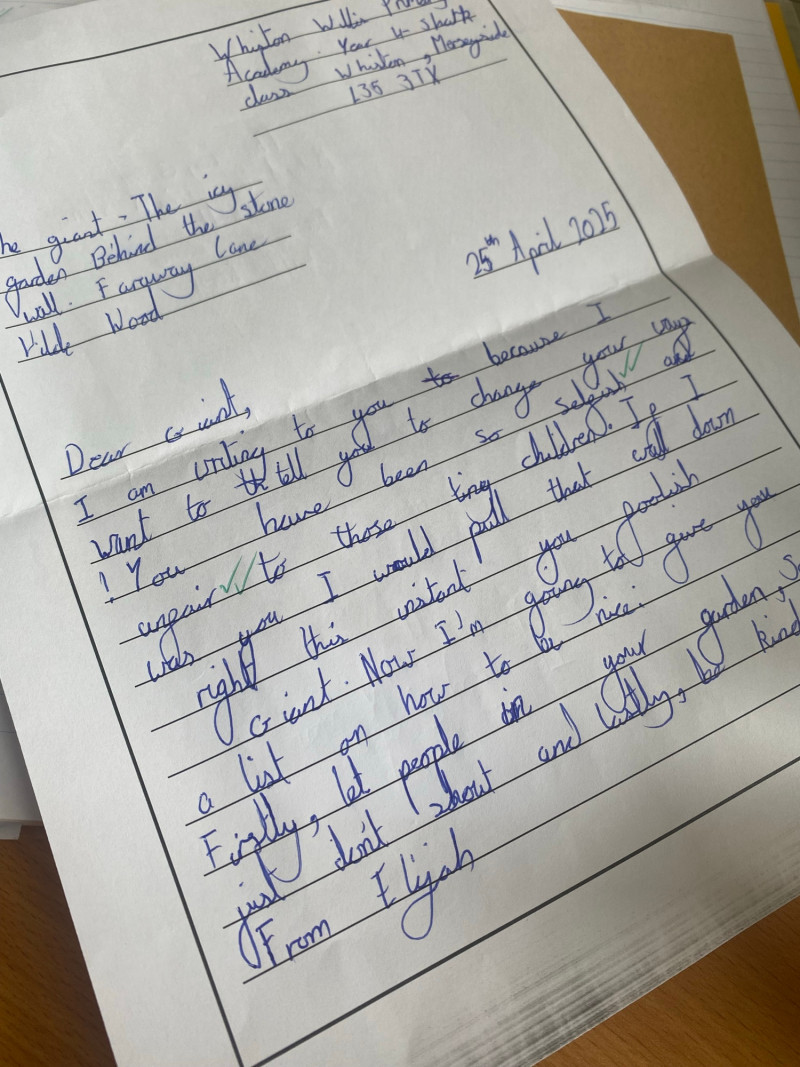 Whiston Willis Primary
Academy. Year 4
class Whiston, Merseyside
L35 3TX
he giant, The icy
garden Behind the stone
wall. Faraway Lane
Wood
25th April 2025
Dear Giant,
I am writing to you to because I
want to tell you to change your ways
! You have been so selfish and
unfair to those tiny children. If I
was you I would pull that wall down
right this instant you foolish
Giant. Now I'm going to give you
a list on how to be nice.
Firstly, let people in your garden,
just don't shout and lastly, be kind
From Elijah